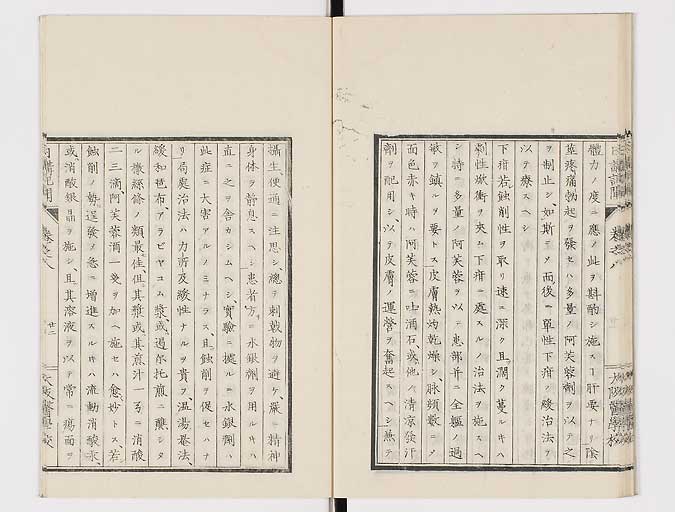 體力ノ度ニ應ノ此ヲ斟酌シ施スヿ肝要ナリ陰
莖疼痛勃起ヲ發セハ多量ノ阿芙蓉劑ヲ以テ之
ヲ制止シ如斯ニメ而後單性下疳ノ緩治法ヲ
以テ療スヘシ
下疳若蝕削性ヲ取リ速ニ深ク且濶ク蔓ルキハ
刺性焮衝ヲ夾ム下疳ニ處スルノ治法ヲ施スヘ
シ特ニ多量ノ阿芙蓉ヲ以テ患部并ニ全軀ノ過
敏ヲ鎮ルヲ要トス皮膚熱灼乾燥シ脉頻數ニメ
面色赤キ時ハ阿芙蓉ニ吐酒石或他ノ清凉發汗
劑ヲ配用シ以テ皮膚ノ運營ヲ奮起スヘシ兼テ
大阪醫學校
攝生便通ニ注思シ總テ刺戟物ヲ避ケ嚴ニ精神
身体ヲ静息スヘシ患者方ニ水銀劑ヲ用ルキハ
直ニ之ヲ舎カシムヘシ實驗ニ據ルニ水銀劑ハ
此症ニ大害アルノミナラス且蝕削ヲ促セハナ
リ局處治法ハ力所及緩性ナルヲ貴フ温湯巻法
緩和琶布アラビヤコム漿或過尓托煎ニ醮シタ
ル撒綜絛ノ類最佳但其漿或其煎汁一弓ニ消酸
二三滴阿芙蓉酒一𠔃ヲ加ヘ施セハ愈妙トス若
蝕削ノ勢逞發ノ急ニ増進スルキハ流動消酸水
或消酸銀晶ヲ施シ且其溶液ヲ以テ常ニ瘍面ヲ
卷之八
廿二
大阪醫學校